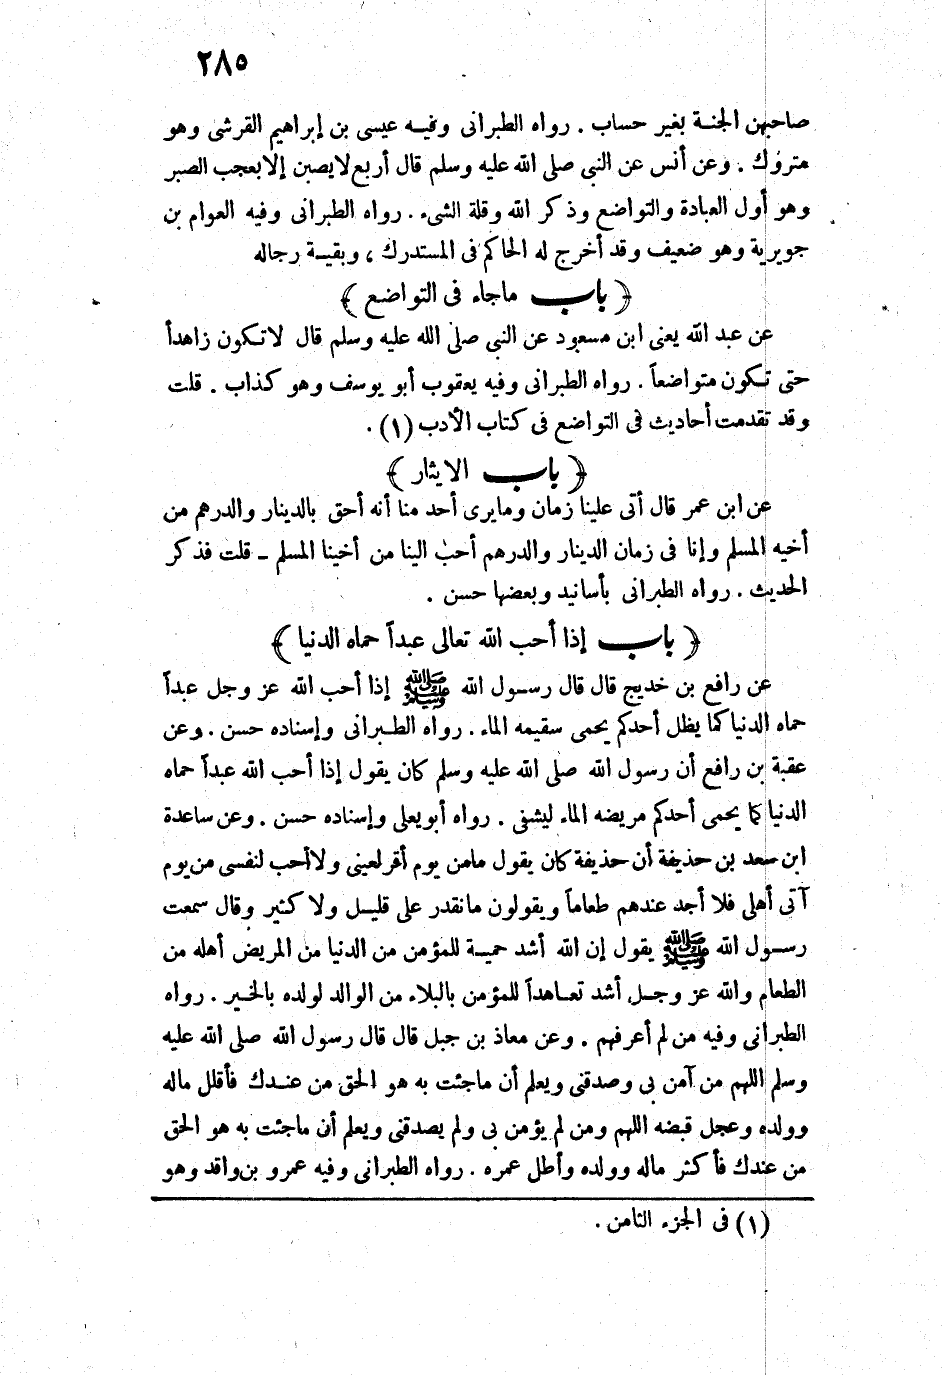 ٢٨٥
صاحبهن الجنة بغير حساب . رواه الطبرانى وفيه عيسى بن إبراهيم القرشى وهو
متروك . وعن أنس عن النبي صلى الله عليه وسلم قال أربع لايصبن إلا بعجب الصبر
وهو أول العبادة والتواضع وذكر الله وقلة الشىء . رواه الطبرانى وفيه العوام بن
جويرية وهو ضعيف وقد أخرج له الحاكم فى المستدرك ، وبقية رجاله
﴿ باب ماجاء فى التواضع ﴾
عن عبد الله يعنى ابن مسعود عن النبى صلى الله عليه وسلم قال لاتكون زاهداً
حتى تكون متواضعاً . رواه الطبرانى وفيه يعقوب أبو يوسف وهو كذاب . قلت
وقد تقدمت أحاديث فى التواضع فى كتاب الأدب (١) .
﴿ باب الايثار ﴾
عن ابن عمر قال أتى علينا زمان ومايرى أحد منا أنه أحق بالدينار والدرهم من
أخيه المسلم وإنا فى زمان الدينار والدرهم أحب الينا من أخينا المسلم - قلت فذكر
الحديث . رواه الطبرانى بأسانيد وبعضها حسن .
﴿ باب إذا أحب الله تعالى عبداً حماه الدنيا ﴾
عن رافع بن خديج قال قال رسول الله ﷺ إذا أحب الله عز وجل عبداً
حماه الدنيا كما يظل أحدكم يحمى سقيمه الماء . رواه الطبرانى وإسناده حسن . وعن
عقبة بن رافع أن رسول الله صلى الله عليه وسلم كان يقول إذا أحب الله عبداً حماه
الدنيا كما يحمى أحدكم مريضه الماء ليشفى . رواه أبو يعلى وإسناده حسن . وعن ساعدة
ابن سعد بن حذيفة أن حذيفة كان يقول مامن يوم أقر لعينى ولا أحب لنفسى من يوم
آتى أهلى فلا أجد عندهم طعاماً ويقولون مانقدر على قليل ولا كثير وقال سمعت
رسول الله ﷺ يقول إن الله أشد حمية للمؤمن من الدنيا من المريض أهله من
الطعام والله عز وجل أشد تعاهداً للمؤمن بالبلاء من الوالد لولده بالخير . رواه
الطبرانى وفيه من لم أعرفهم . وعن معاذ بن جبل قال قال رسول الله صلى الله عليه
وسلم اللهم من آمن بى وصدقنى ويعلم أن ماجئت به هو الحق من عندك فأقلل ماله
وولده وعجل قبضه اللهم ومن لم يؤمن بى ولم يصدقنى ويعلم أن ماجئت به هو الحق
من عندك فأكثر ماله وولده وأطل عمره . رواه الطبرانى وفيه عمرو بن واقد وهو
(١) فى الجزء الثامن .